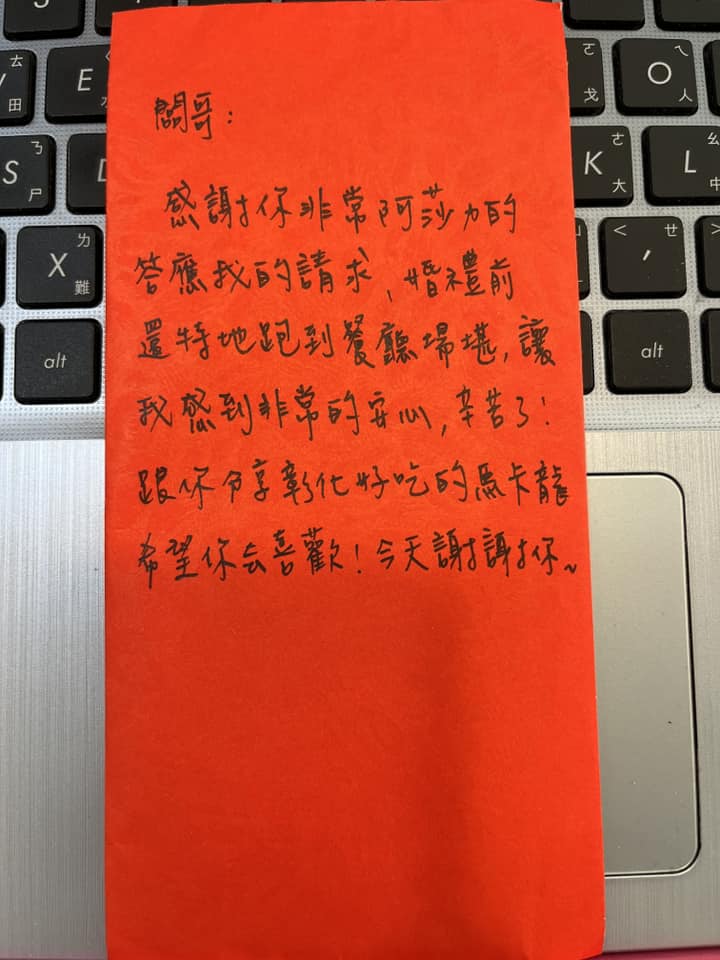 闆哥:
感謝你非常阿莎力的
答應我的請求,婚禮前
還特地跑到餐廳場堪,讓
我感到非常的安心,辛苦了!
跟你分享彰化好吃的馬卡龍
希望你会喜歡!今天謝謝你~
E
O
人
S
ㄋ
尸
D
K
ㄜ
大
L
ㄠ
中
X
ㄌ
難
alt
alt